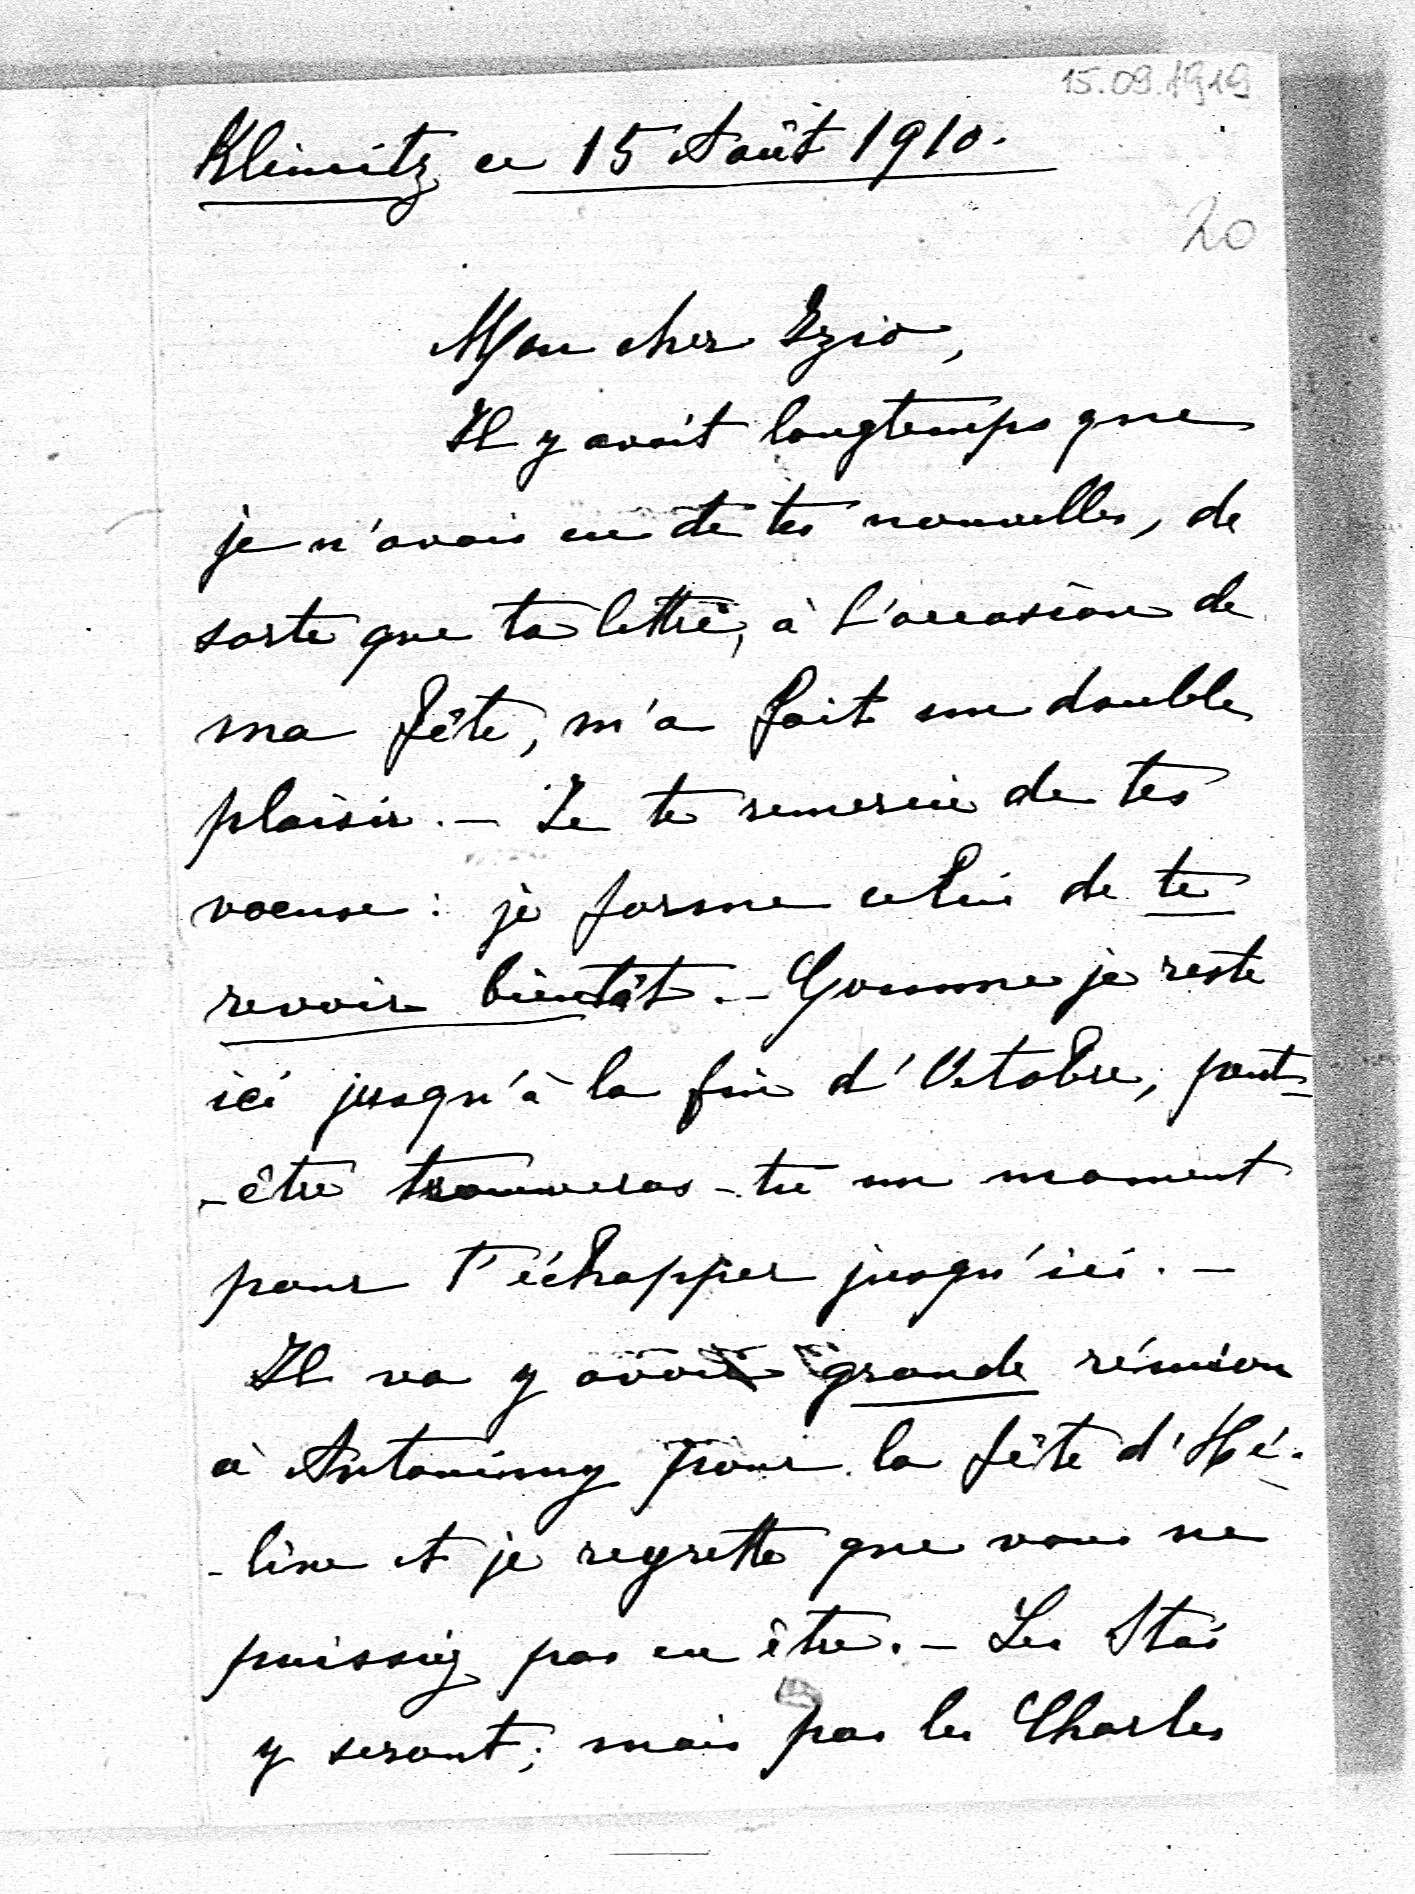 15.09.1919
Klimitz ce 15 Août 1910.
20
Mon cher Izio,
Il y avait longtemps que
je n'avais eu de tes nouvelles, de
sorte que ta lettre, à l'occasion de
ma fête, m'a fait un double
plaisir. — Je te remercie de tes
voeux : je forme celui de te
revoir bientôt. — Comme je reste
ici jusqu'à la fin d'Octobre, peut-
-être trouveras-tu un moment
pour t'échapper jusqu'ici. —
Il va y avoir grande réunion
à Antoniny pour la fête d'Hé-
-lène et je regrette que vous ne
puissiez pas en être. — Les Stas
y seront; mais pas les Charles